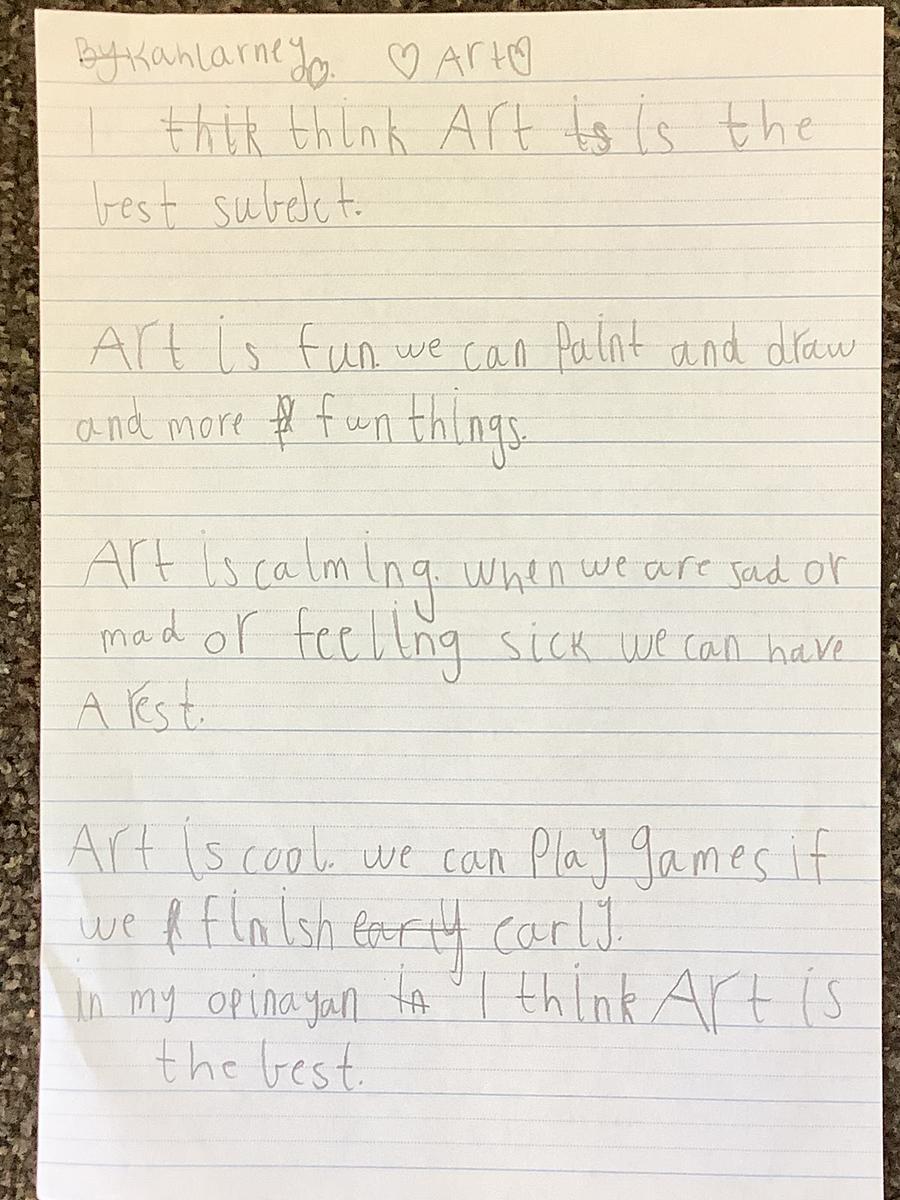 By Kahlarney ♡. ♡ Art ♡
I thik think Art is is the
best subekct.
Art is fun. we can Paint and draw
and more fun things.
Art is calming. when we are sad or
mad or feeling sick we can have
A rest.
Art is cool. we can Play games if
we finish early early.
in my opinayan in I think Art is
the best.